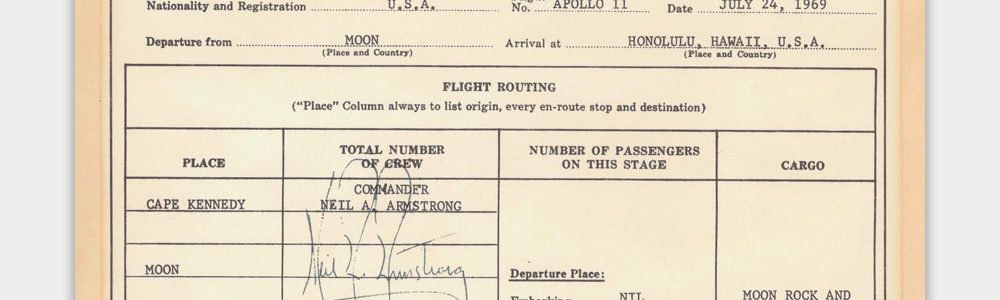 Nationality and Registration U.S.A. No. APOLLO 11 Date JULY 24, 1969
Departure from MOON Arrival at HONOLULU, HAWAII, U.S.A.
(Place and Country) (Place and Country)
FLIGHT ROUTING
("Place" Column always to list origin, every en-route stop and destination)
PLACE TOTAL NUMBER OF CREW NUMBER OF PASSENGERS ON THIS STAGE CARGO
COMMANDER
CAPE KENNEDY NEIL A. ARMSTRONG
MOON Neil A. Armstrong
Departure Place:
Embarking NIL MOON ROCK AND